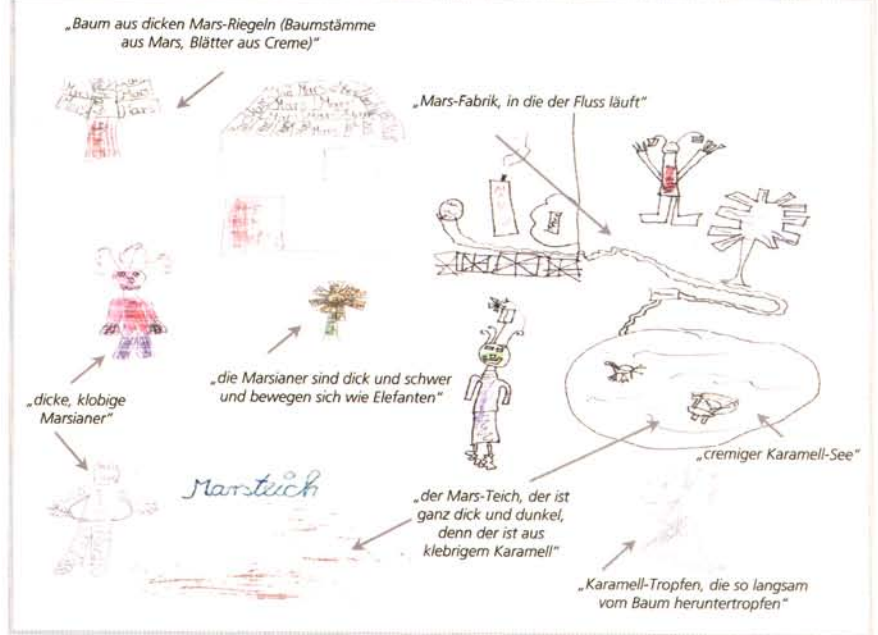 „Baum aus dicken Mars-Riegeln (Baumstämme
aus Mars, Blätter aus Creme)“
„Mars-Fabrik, in die der Fluss läuft“
„die Marsianer sind dick und schwer
und bewegen sich wie Elefanten“
„dicke, klobige
Marsianer“
„cremiger Karamell-See“
Marsteich
„der Mars-Teich, der ist
ganz dick und dunkel,
denn der ist aus
klebrigem Karamell“
„Karamell-Tropfen, die so langsam
vom Baum heruntertropfen“